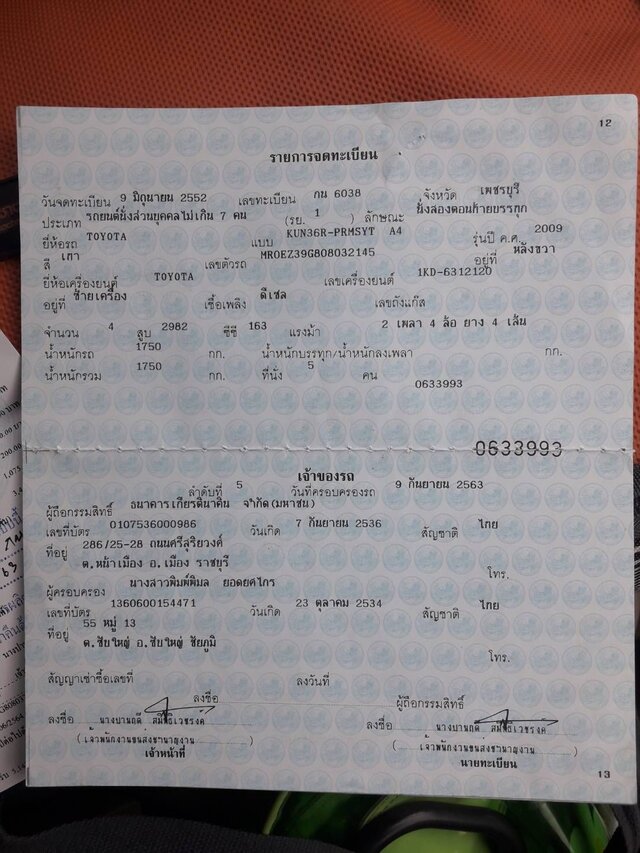 12
รายการจดทะเบียน
วันจดทะเบียน 9 มิถุนายน 2552 เลขทะเบียน กน 6038 จังหวัด เพชรบุรี
ประเภท รถยนต์นั่งส่วนบุคคลไม่เกิน 7 คน (รย. 1 ) ลักษณะ นั่งสองตอนท้ายบรรทุก
ยี่ห้อรถ TOYOTA แบบ KUN36R-PRMSYT A4 รุ่นปี ค.ศ. 2009
สี เทา เลขตัวรถ MROEZ39G808032145 อยู่ที่ หลังขวา
ยี่ห้อเครื่องยนต์ TOYOTA เลขเครื่องยนต์ 1KD-6312120
อยู่ที่ ซ้ายเครื่อง เชื้อเพลิง ดีเซล เลขถังแก๊ส
จำนวน 4 สูบ 2982 ซีซี 163 แรงม้า 2 เพลา 4 ล้อ ยาง 4 เส้น
น้ำหนักรถ 1750 กก. น้ำหนักบรรทุก/น้ำหนักลงเพลา กก.
น้ำหนักรวม 1750 กก. ที่นั่ง 5 คน
0633993
0633993
เจ้าของรถ
ลำดับที่ 5 วันที่ครอบครองรถ 9 กันยายน 2563
ผู้ถือกรรมสิทธิ์ ธนาคารเกียรตินาคิน จำกัด(มหาชน)
เลขที่บัตร 0107536000986 วันเกิด 7 กันยายน 2536 สัญชาติ ไทย
ที่อยู่ 286/25-28 ถนนศรีสุริยวงศ์
ต.หน้าเมือง อ.เมือง ราชบุรี
โทร.
ผู้ครอบครอง นางสาวพิมพ์พิมล ยอดยศไกร
เลขที่บัตร 1360600154471 วันเกิด 23 ตุลาคม 2534 สัญชาติ ไทย
ที่อยู่ 55 หมู่ 13
ต.ซับใหญ่ อ.ซับใหญ่ ชัยภูมิ
โทร.
สัญญาเช่าซื้อเลขที่ ลงวันที่
ลงชื่อ ผู้ถือกรรมสิทธิ์
ลงชื่อ นางบานฤดี ลงชื่อ นางบานฤดี
(เจ้าพนักงานขนส่งชำนาญงาน) (เจ้าพนักงานขนส่งชำนาญงาน)
เจ้าหน้าที่ นายทะเบียน
13